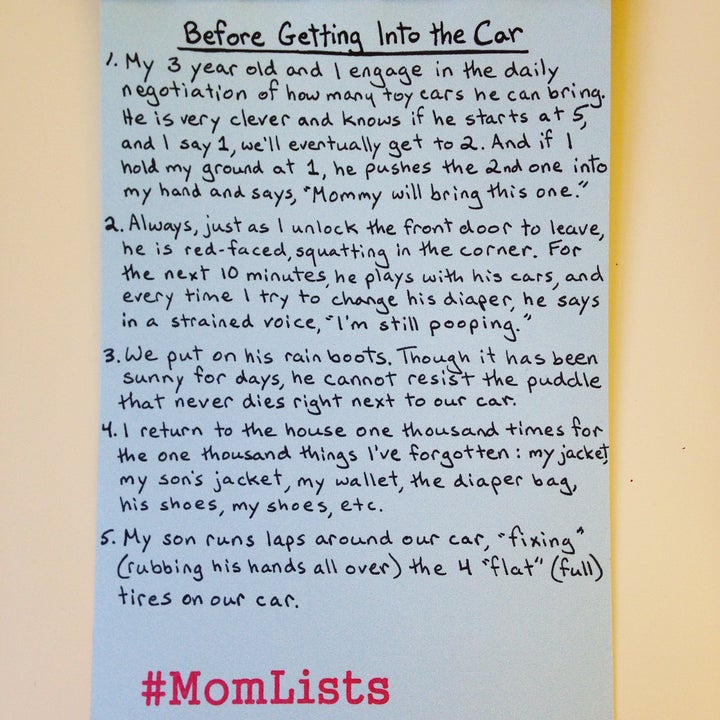 Before Getting Into the Car
1. My 3 year old and I engage in the daily
negotiation of how many toy cars he can bring.
He is very clever and knows if he starts at 5,
and I say 1, we'll eventually get to 2. And if I
hold my ground at 1, he pushes the 2nd one into
my hand and says, "Mommy will bring this one."
2. Always, just as I unlock the front door to leave,
he is red-faced, squatting in the corner. For
the next 10 minutes, he plays with his cars, and
every time I try to change his diaper, he says
in a strained voice, "I'm still pooping."
3. We put on his rain boots. Though it has been
sunny for days, he cannot resist the puddle
that never dies right next to our car.
4. I return to the house one thousand times for
the one thousand things I've forgotten: my jacket,
my son's jacket, my wallet, the diaper bag,
his shoes, my shoes, etc.
5. My son runs laps around our car, "fixing"
(rubbing his hands all over) the 4 "flat" (full)
tires on our car.
#MomLists